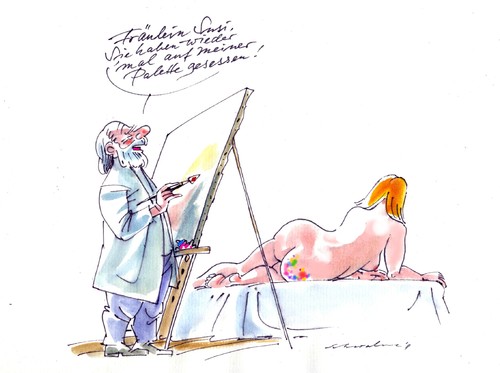 Fräulein Susi.
Sie haben wieder
'mal auf meiner
Palette gesessen!